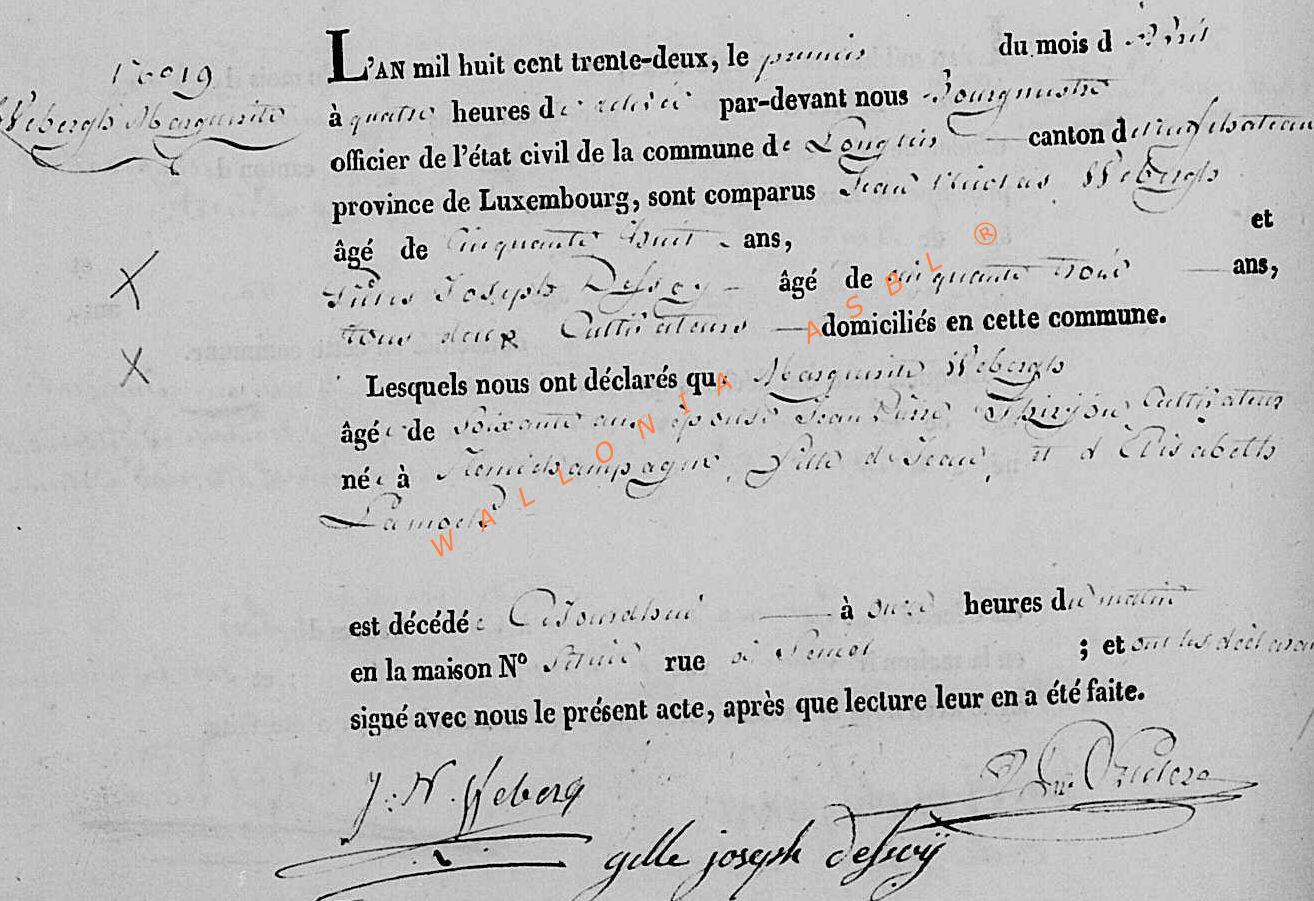 N.o 19
Webergh Marguerite
L'AN mil huit cent trente-deux, le premier du mois d'Avril
à quatre heures de relevée par-devant nous Bourgmestre
officier de l'état civil de la commune de Longlier canton de neufchateau
province de Luxembourg, sont comparus Jean Nicolas Webergh
âgé de Cinquante huit ans, et
Joseph âgé de cinquante trois ans,
tous deux Cultivateurs domiciliés en cette commune.
Lesquels nous ont déclarés que Marguerite Webergh
âgée de Soixante ans épouse Jean Pierre Thiryon Cultivateur
née à Remichampagne, fille de Jean, et d'Elisabeth
est décédée Aujourdhui à onze heures du matin
en la maison N° rue à ; et ont les déclarans
signé avec nous le présent acte, après que lecture leur en a été faite.
J: N. Weberg
gille joseph defooÿ
WALLONIA ASBL ®